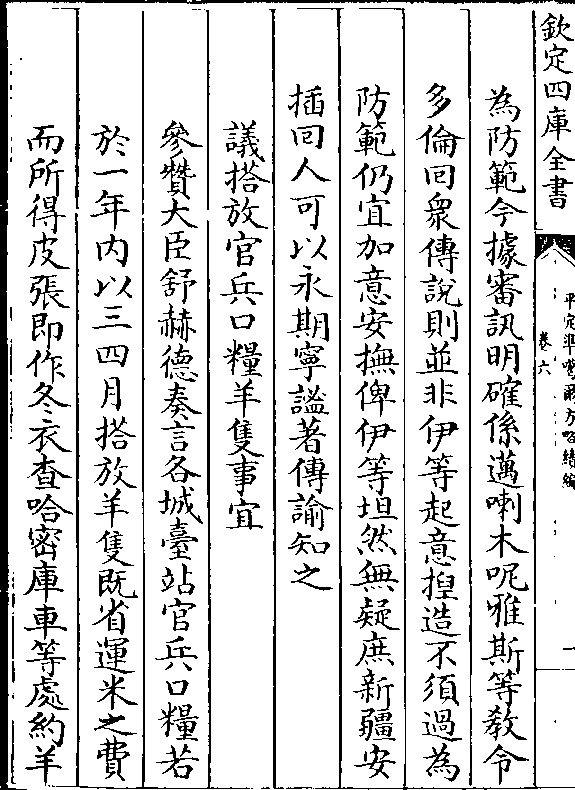 欽定四庫全書
平定準噶爾方略續編
卷六
為防範今據審訊明確係邁喇木呢雅斯等教令
多倫回衆傳說則並非伊等起意揑造不須過為
防範仍宜加意安撫俾伊等坦然無疑庶新疆安
插回人可以永期寧謐著傳諭知之
議搭放官兵口糧羊隻事宜
參贊大臣舒赫德奏言各城臺站官兵口糧若
於一年內以三四月搭放羊隻既省運米之費
而所得皮張即作冬衣查哈密庫車等處約羊